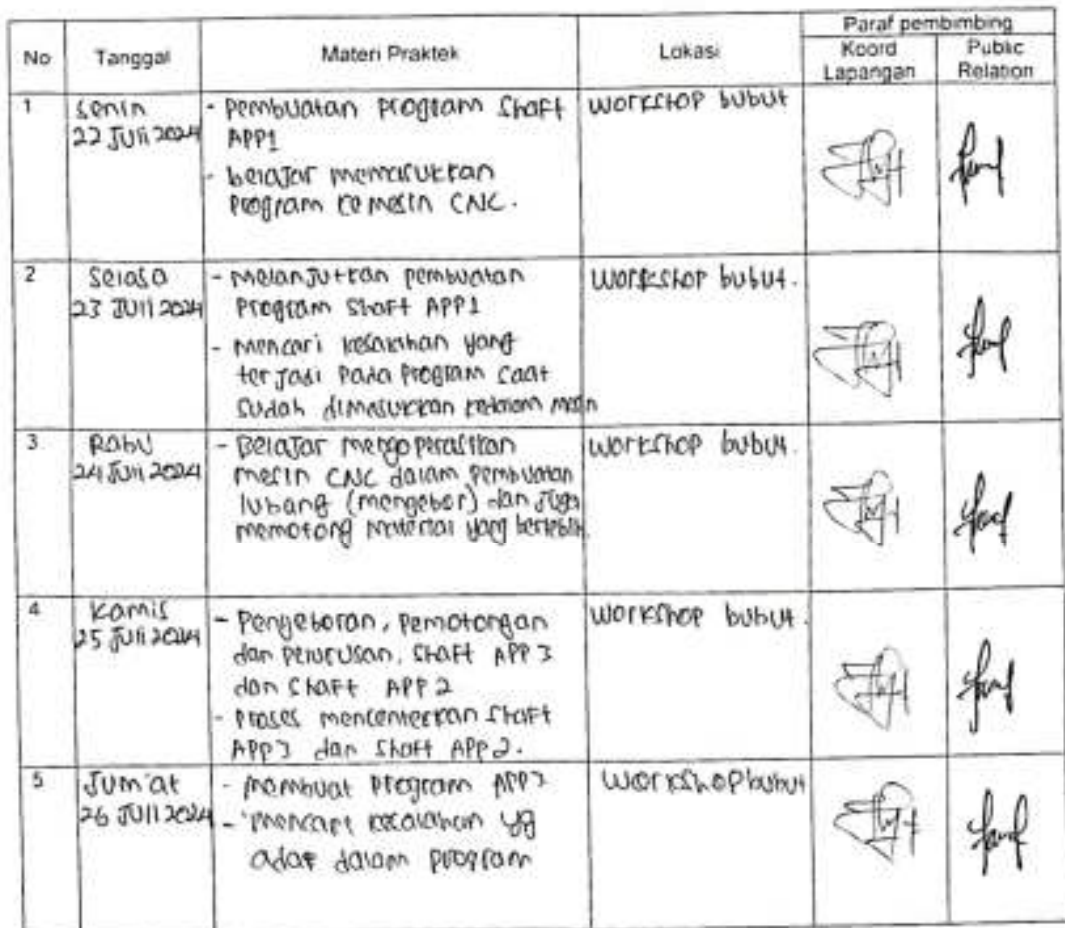 No Tanggal Materi Praktek Lokasi Paraf pembimbing
Koord Lapangan Public Relation
1 Senin 22 Juli 2024
- Pembuatan program Shaft
APP1
- belajar memasukkan
program ke mesin CNC.
Workshop bubut
2 Selasa 23 Juli 2024
- Melanjutkan pembuatan
Program Shaft APP1
- Mencari kesalahan yang
terjadi pada program saat
sudah dimasukkan kedalam mesin
Workshop bubut.
3 Rabu 24 Juli 2024
- Belajar mengoperasikan
mesin CNC dalam pembuatan
lubang (mengebor) dan juga
memotong material yang berlebih.
Workshop bubut.
4 Kamis 25 Juli 2024
- Pengeboran, pemotongan
dan pelurusan, Shaft APP 3
dan Shaft APP 2
- Proses mencenterkan Shaft
APP3 dan Shaft APP2.
Workshop bubut.
5 Jum'at 26 Juli 2024
- Membuat program APP3
- Mencari kesalahan yg
dalam program
Workshop bubut